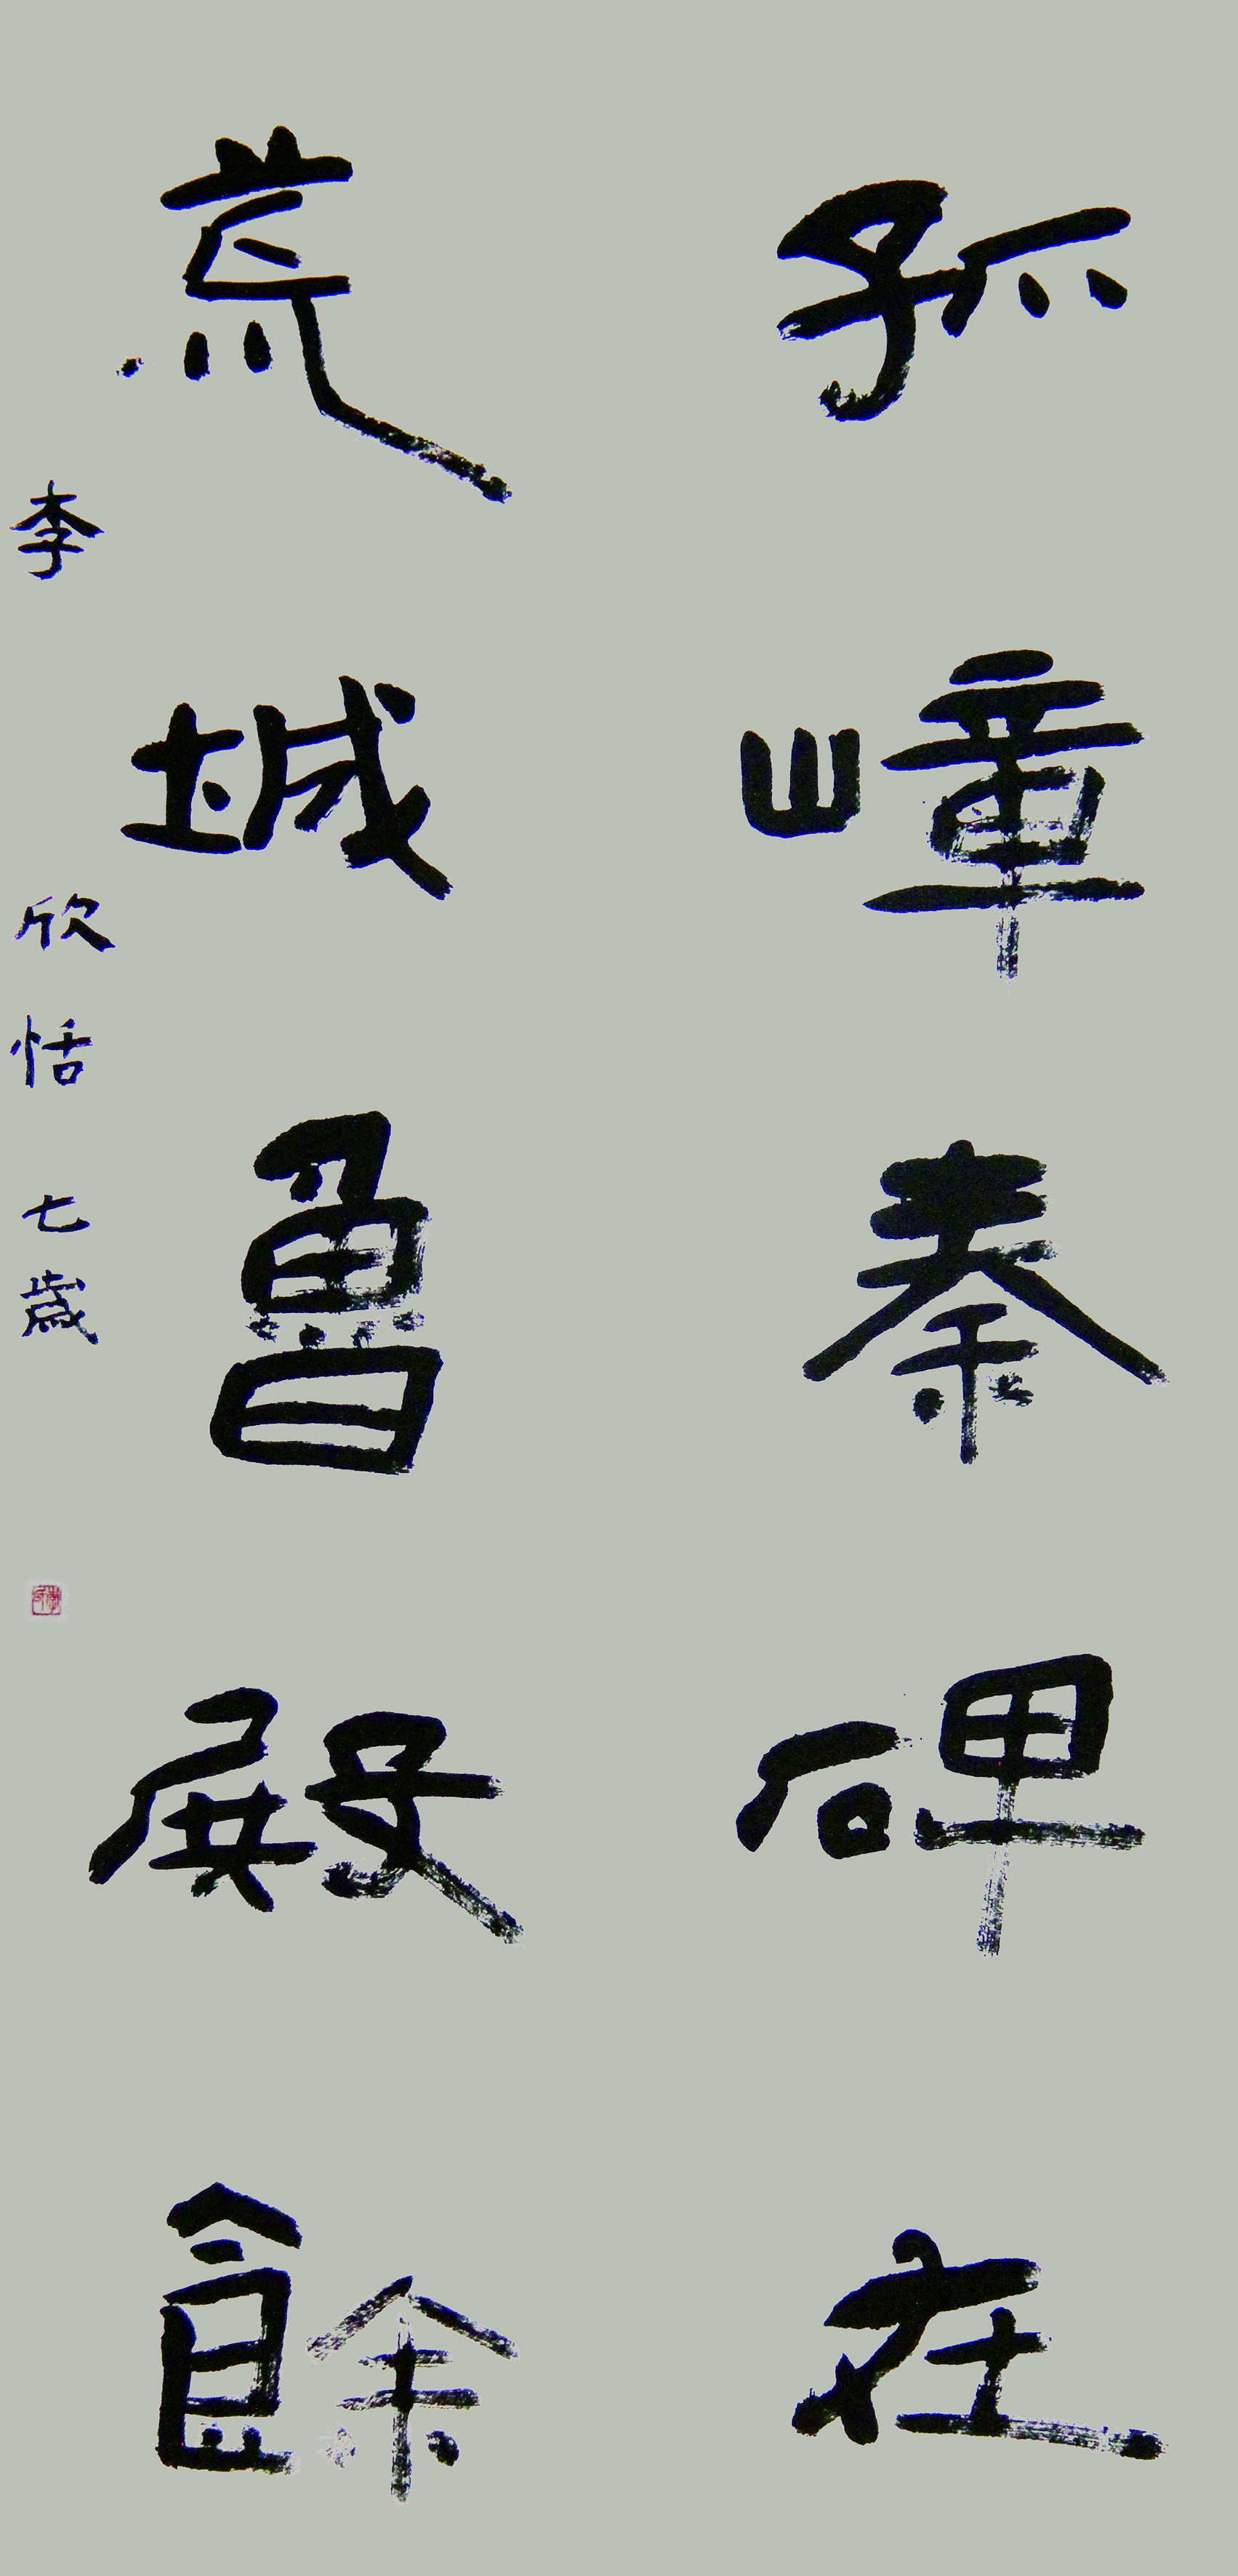 孤嶂秦碑在
荒城魯殿餘
李欣恬七歲